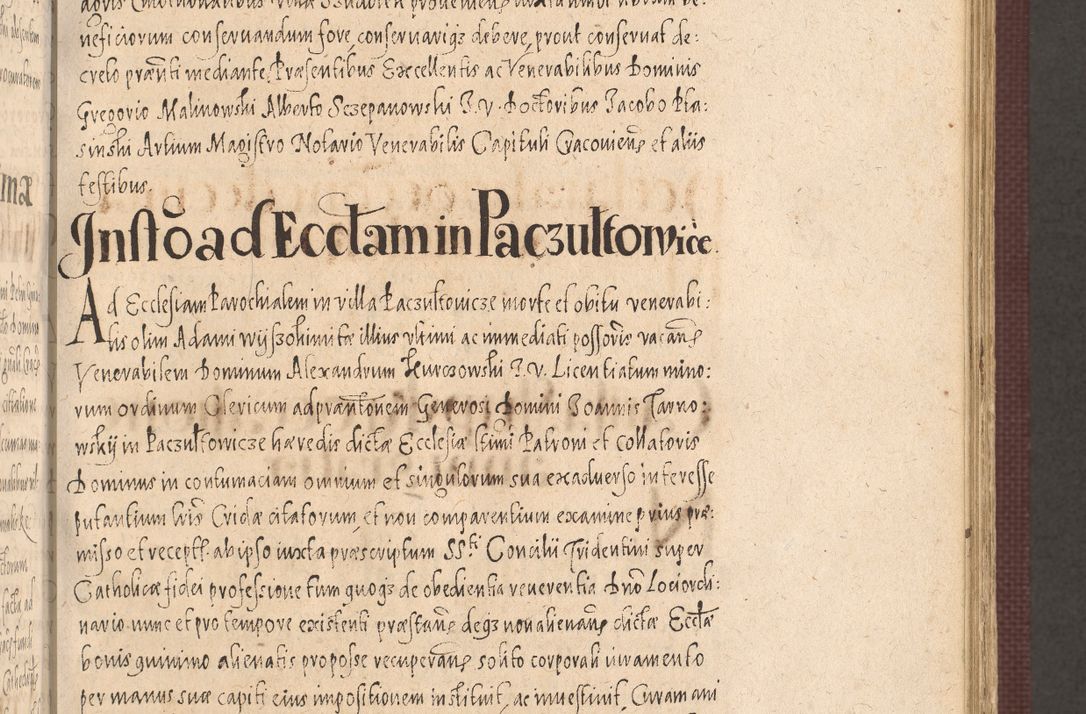 neficiorum conservandum fore, conservariq3 debere, prout conservat de:
creto præñti mediante, Præsentibus Excellentis ac Venerabilibus Dominis
Gregorio Malinowski Alberto Sczepanowski I. V. Doctoribus Iacobo Pia:
sinski Artium Magistro Notario Venerabilis Capituli Cracovieñ et aliis
testibus.
Instõ ad Ecctam in Paczułtowice.
Ad Ecclesiam Parochialem in villa Paczułtowicze morte et obitu venerabi:
lis olim Adami wyszohimirtæ illius ultimi ac immediati possoris vacañ
Venerabilem Dominum Alexandrum Kurozowski I. V. Licentiatum mino:
rum ordinum Clericum ad præntõnem Generosi Domini Ioannis Tarno:
wskÿ in Paczułtowicze hæredis dictæ Ecclesiæ ltimi Patroni et Collatoris
Dominus in contumaciam omnium et singulorum sua ex adverso interesse
putantium lris Cridæ citatorum, et non comparentium examine prius præ:
misso et recept. ab ipso iuxta præscriptum SSti Concilii Tridentini super
Catholicæ fidei professione tum quoq3 de obedientia reverentia Dno Loci ordi:
nario nunc et pro tempore existenti præstañ deq3 non alienañ dictæ Ecctæ
bonis quinimo alienatis pro posse recuperañ solito corporali iuramento
per manus suæ capiti eius impositionem instituit, ac investivit, Curam ani